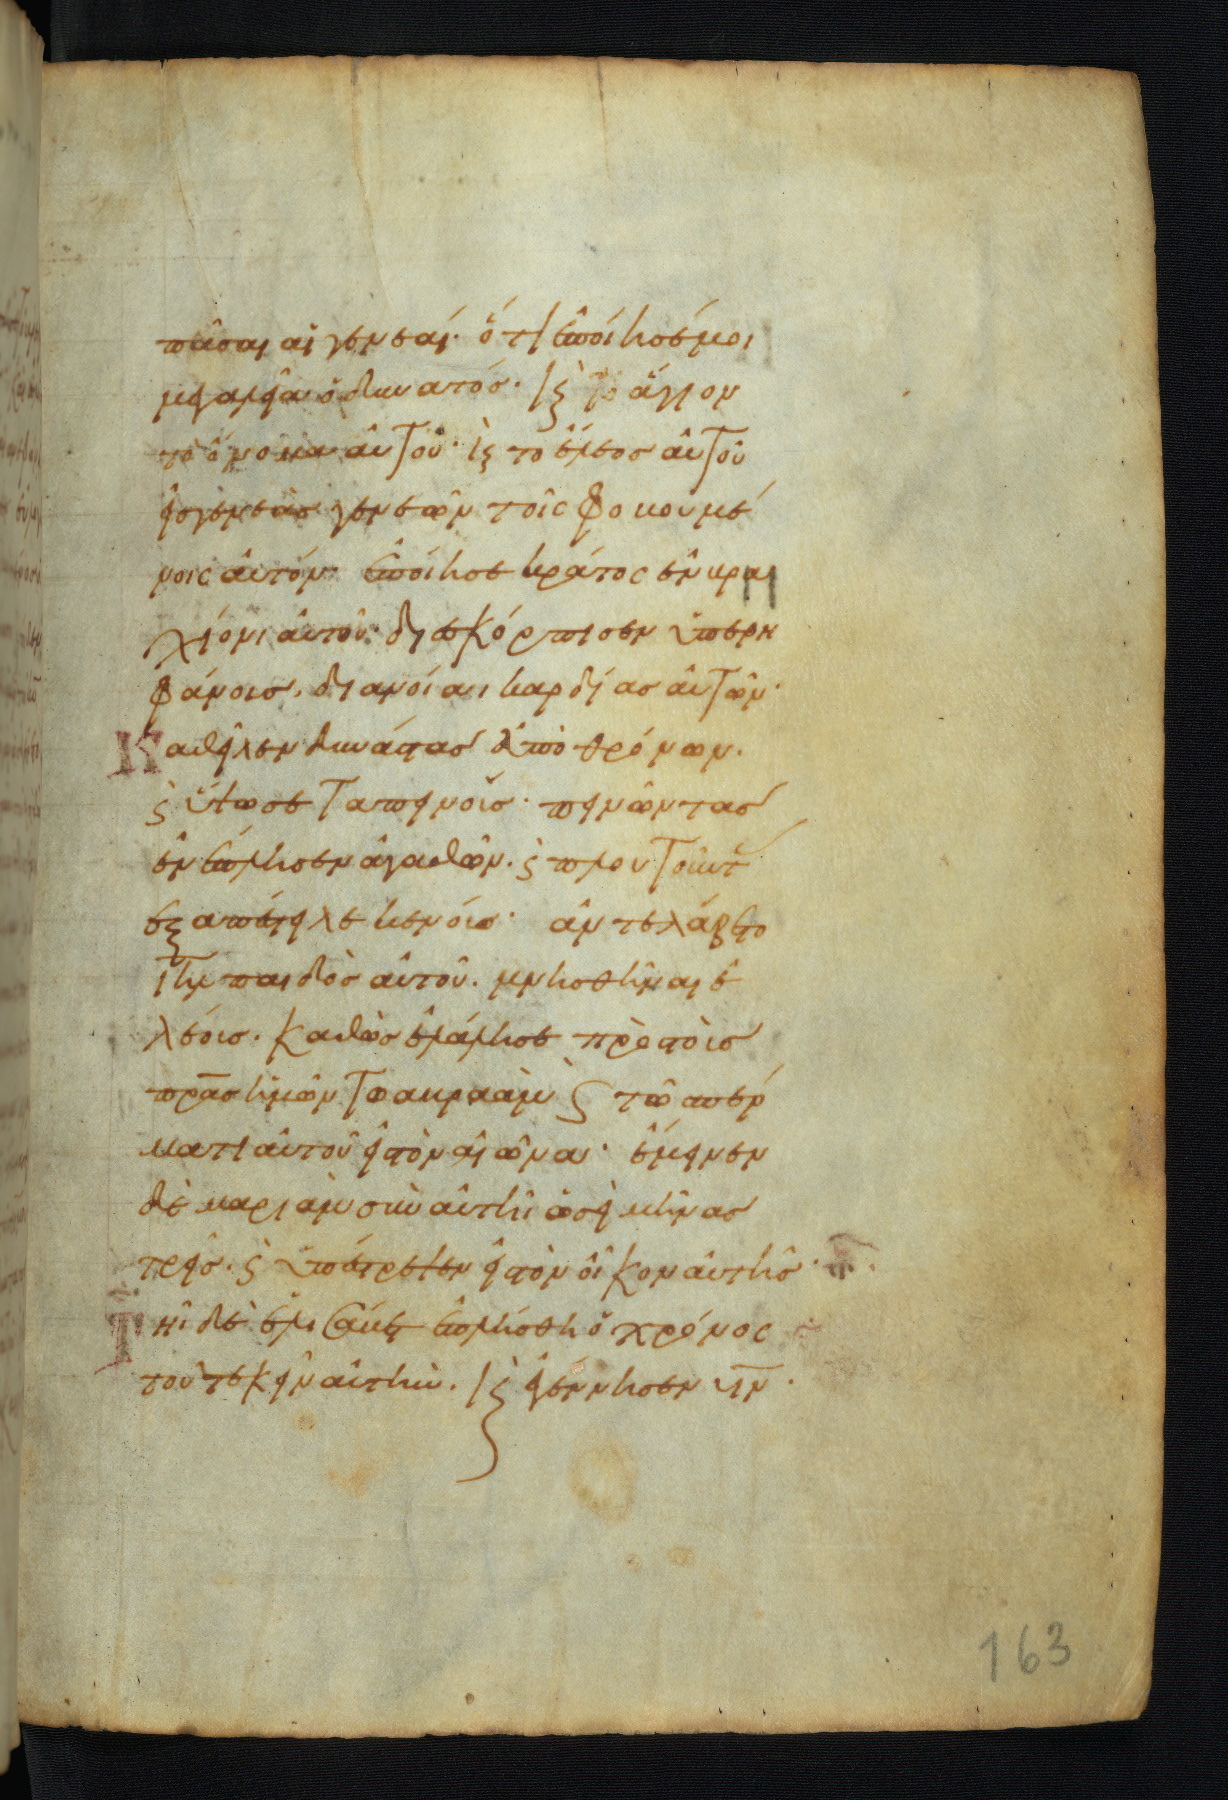 πᾶσαι αἱ γενεαί· ὅτι ἐποίησέ μοι
μεγαλεῖα ὁ δυνατός· κ(αὶ) ἅγιον
τὸ ὄνομα αὐτοῦ· κ(αὶ) τὸ ἔλεος αὐτοῦ
εἰς γενεὰς γενεῶν τοῖς φοβουμέ
νοις αὐτόν· ἐποίησε κράτος ἐν βρα
χίονι αὐτοῦ· διεσκόρπισεν ὑπερη
φάνους διανοίαι καρδίας αὐτῶν·
Καθεῖλεν δυνάστας ἀπὸ θρόνων·
ϛ ὕψωσε ταπεινούς· πεινῶντας
ἐνέπλησεν ἀγαθῶν· ϛ πλουτοῦντ(ας)
ἐξαπέστειλε κενούς· ἀντελάβετο
ιηλ παιδὸς αὐτοῦ· μνησθῆναι ἐ
λέους· καθὼς ἐλάλησε πρὸς τοὺς
πρας ἡμῶν τῶ ἀβραὰμ ϛ τῶ σπέρ
ματι αὐτοῦ εἰς τὸν αἰῶνα· ἔμεινεν
δὲ μαριὰμ σὺν αὐτῆ ὡσεὶ μῆνας
τρεῖς· ϛ ὑπέστρεψεν εἰς τὸν οἶκον αὐτῆς·
Τῆ δὲ ἐλισάβετ ἐπλήσθη ὁ χρόνος
τοῦ τεκεῖν αὐτήν· κ(αὶ) ἐγέννησεν υιν·
163